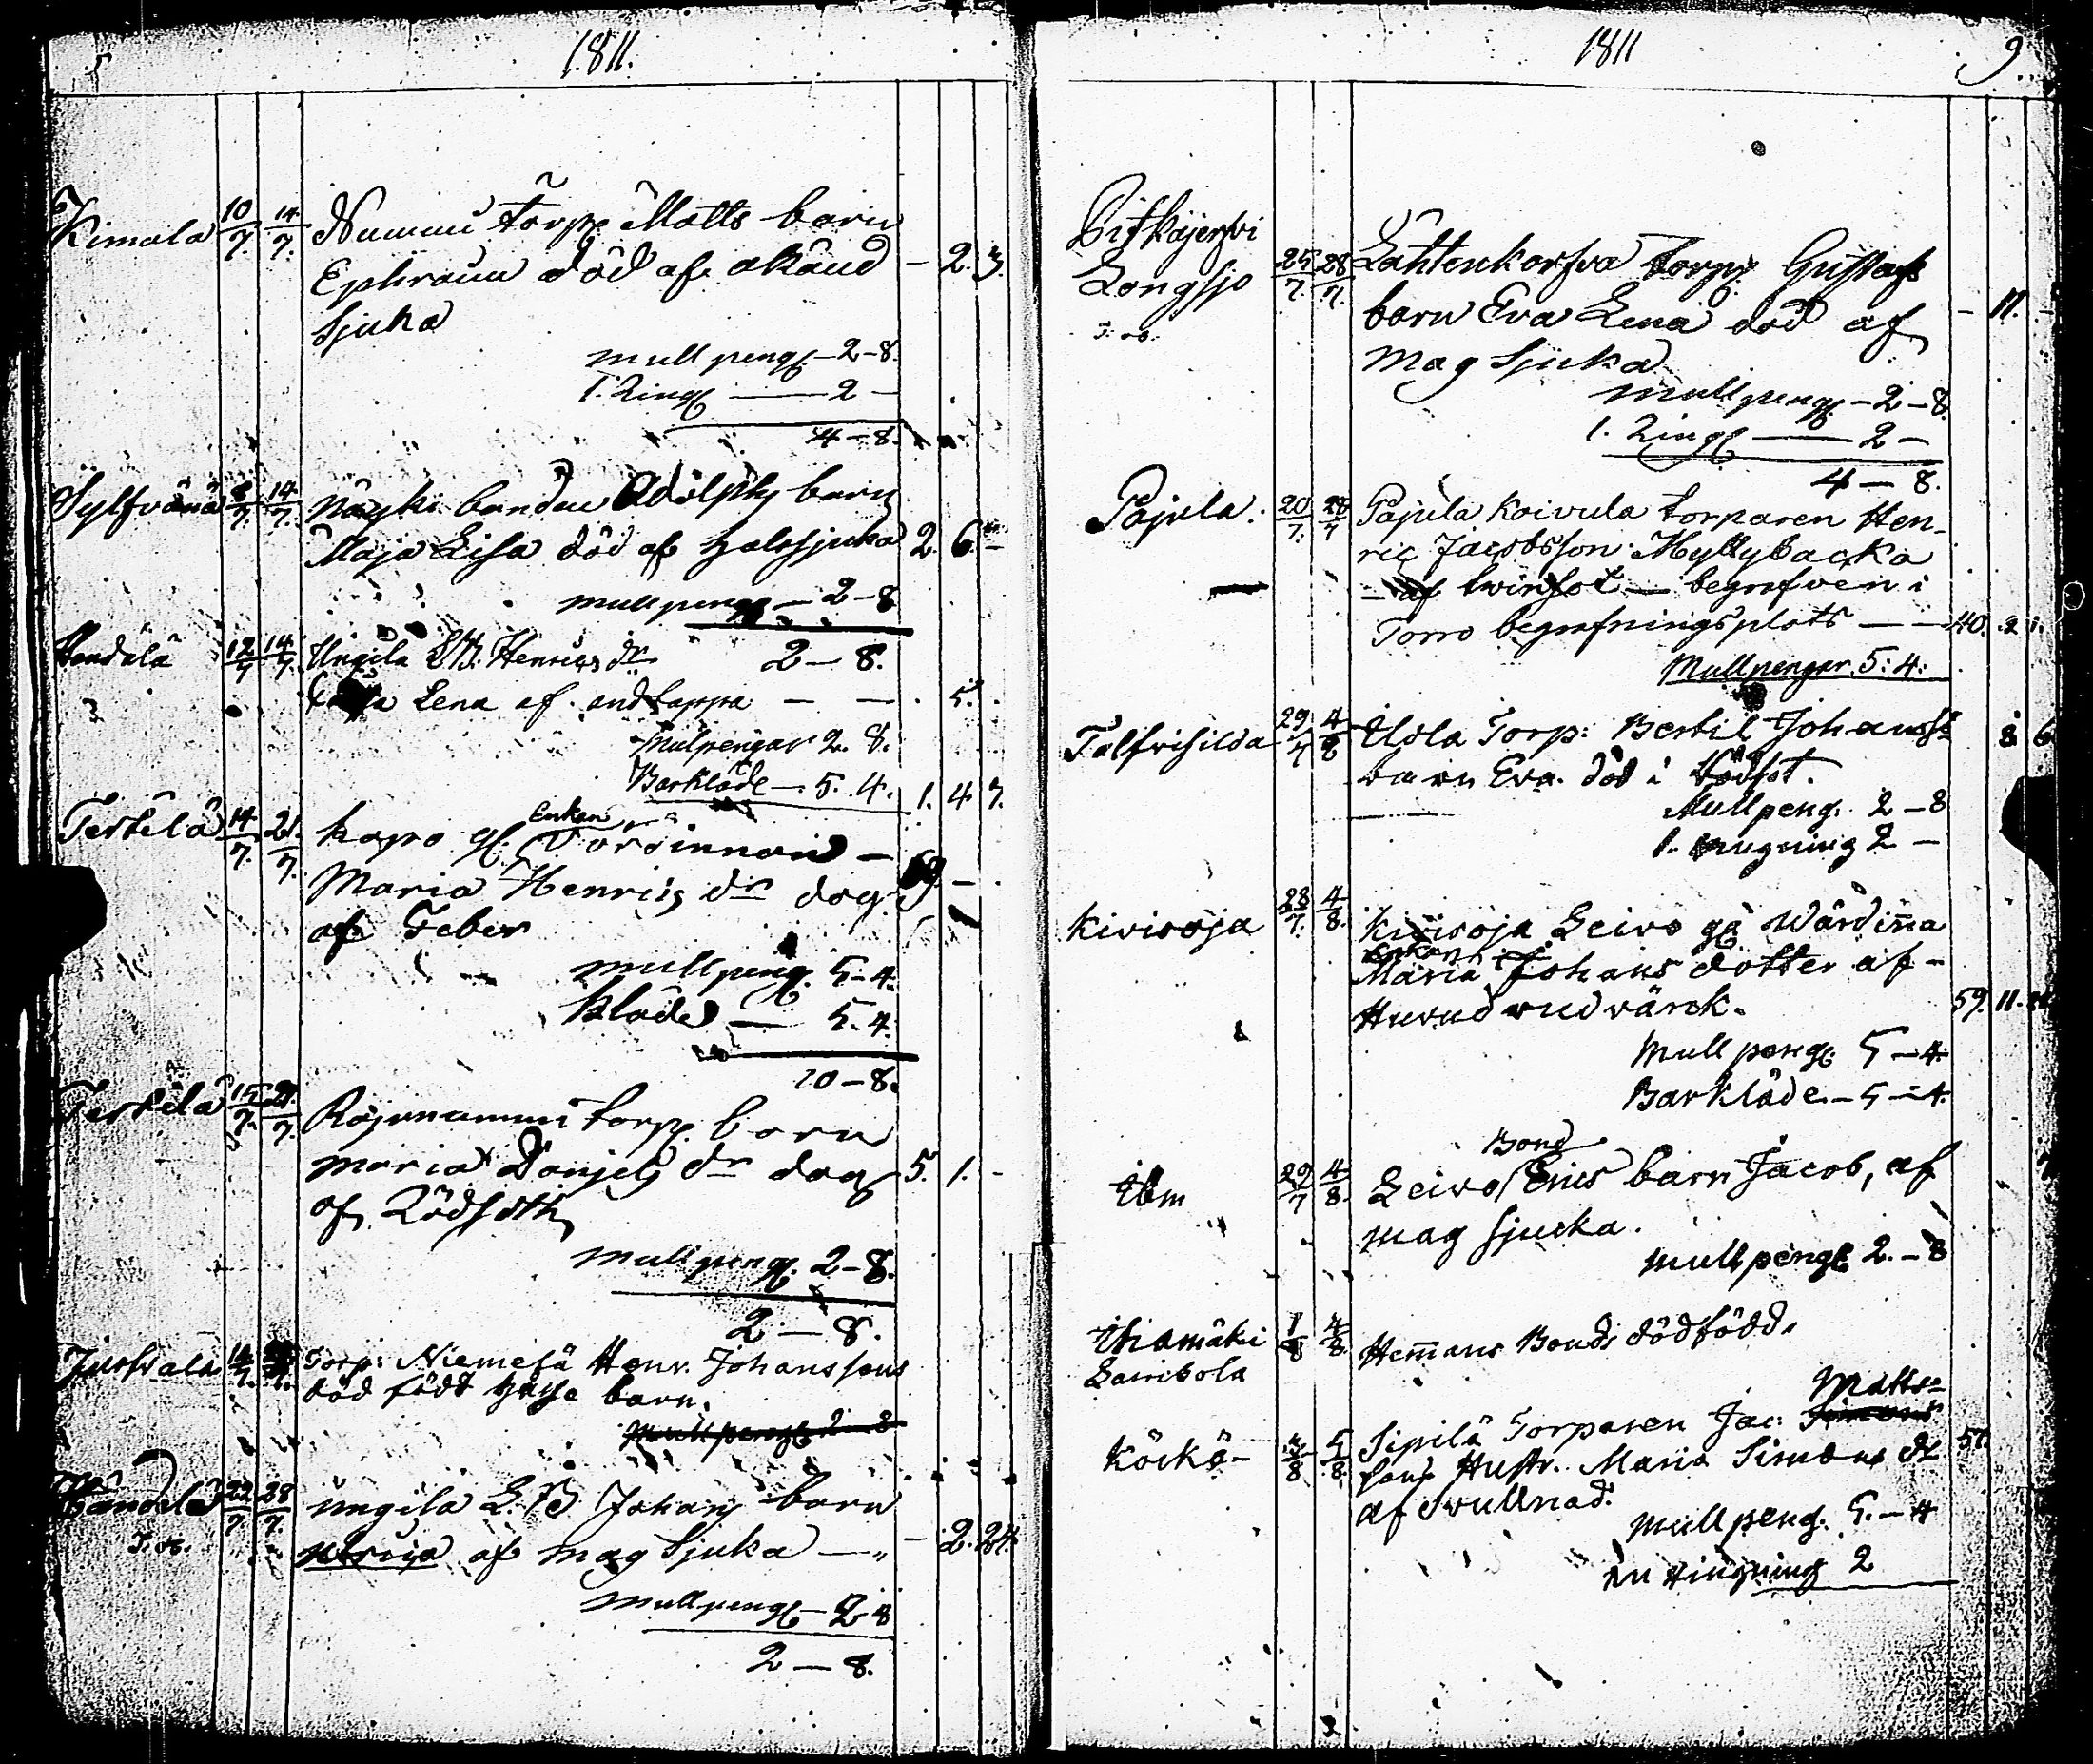 1811.
Kimala 10/7. 14/7. Nummi torp. Matts barn
Ephraim död af okänd - 2. 3.
Sjuka
mull peng. - 2 - 8.
1. Ring. - 2 -
4 - 8.
Sylfvänä 8/7. 14/7. Näyki bonden Adolphs barn
Maja Lisa död af halssjuka 2. 6. -
mull peng. - 2 - 8
2 - 8.
Handela 12/7 14/7. Ungila Henrics dr
Lena af andtäppa - - . 5.
Mulpengar 2. 8.
Barkläde - 5. 4. 1. 4 7.
Terkelä 14/7. 21./7. hapo gl. Enkan Värdinnan -
Maria Henrics dr dog 69 -
af Feber
mull peng. 5 - 4.
kläde - 5. 4.
10 - 8.
Terkelä 15/7. 21./7. Rajunummi torp. barn
maria Danjels dr dog 5. 1. -
af Rödsoth
mull peng. 2 - 8.
2 - 8.
Torp: Niemesä Henr. Johanssons
död född barn.
Mull peng. 2 8
Händela 22/7 28/7. ungila L. B Johans barn
maria af mag Sjuka - 2. 24.
mull peng. - 2 - 8
2 - 8.
1811 9.
Pitkäjerfvi
Longsjo 25/7. 28/7. Lahtenkorfva torp. Gustafs
barn Eva Lena död af - 11. -
mag Sjuka
mull peng. - 2 - 8.
1. Ring. - 2 -
4 - 8.
Pajula. 20/7. 28/7 Pajula Koivula torparen Hen-
ric Jacobsson Myllybacka
- af tvinsot - begrafven i
Torro begrafningsplats - - 40. 2 1.
Mullpengar 5: 4:
Talfvisilda 29/7 4/8 Torp: Bertil Johanss
barn Eva. död i Rödsot. 8 6
Mullpeng. 2 - 8
1. ringning 2 -
Kivisoja 28/7. 4/8. Kivisoja Leivo gl. Wärdinna
Enkan
Maria Johans dotter af -
Huvud värck. 59. 11.
Mull peng. 5 - 4
Barkläde. - 5 - 4.
Ibm 29/7 4/8. Leivo Bond Erics barn Jacob, af
mag sjucka.
Mull peng. 2. - 8
1/8 4/8. Hemans Bonds dödfödd.
Matts-
Köckö - 5/8. Sipilä Torparen Jac: Simons
sons Hustr. Maria Simons dr 57.
af Svullnad.
Mull peng. 5. - 4
en ringning 2